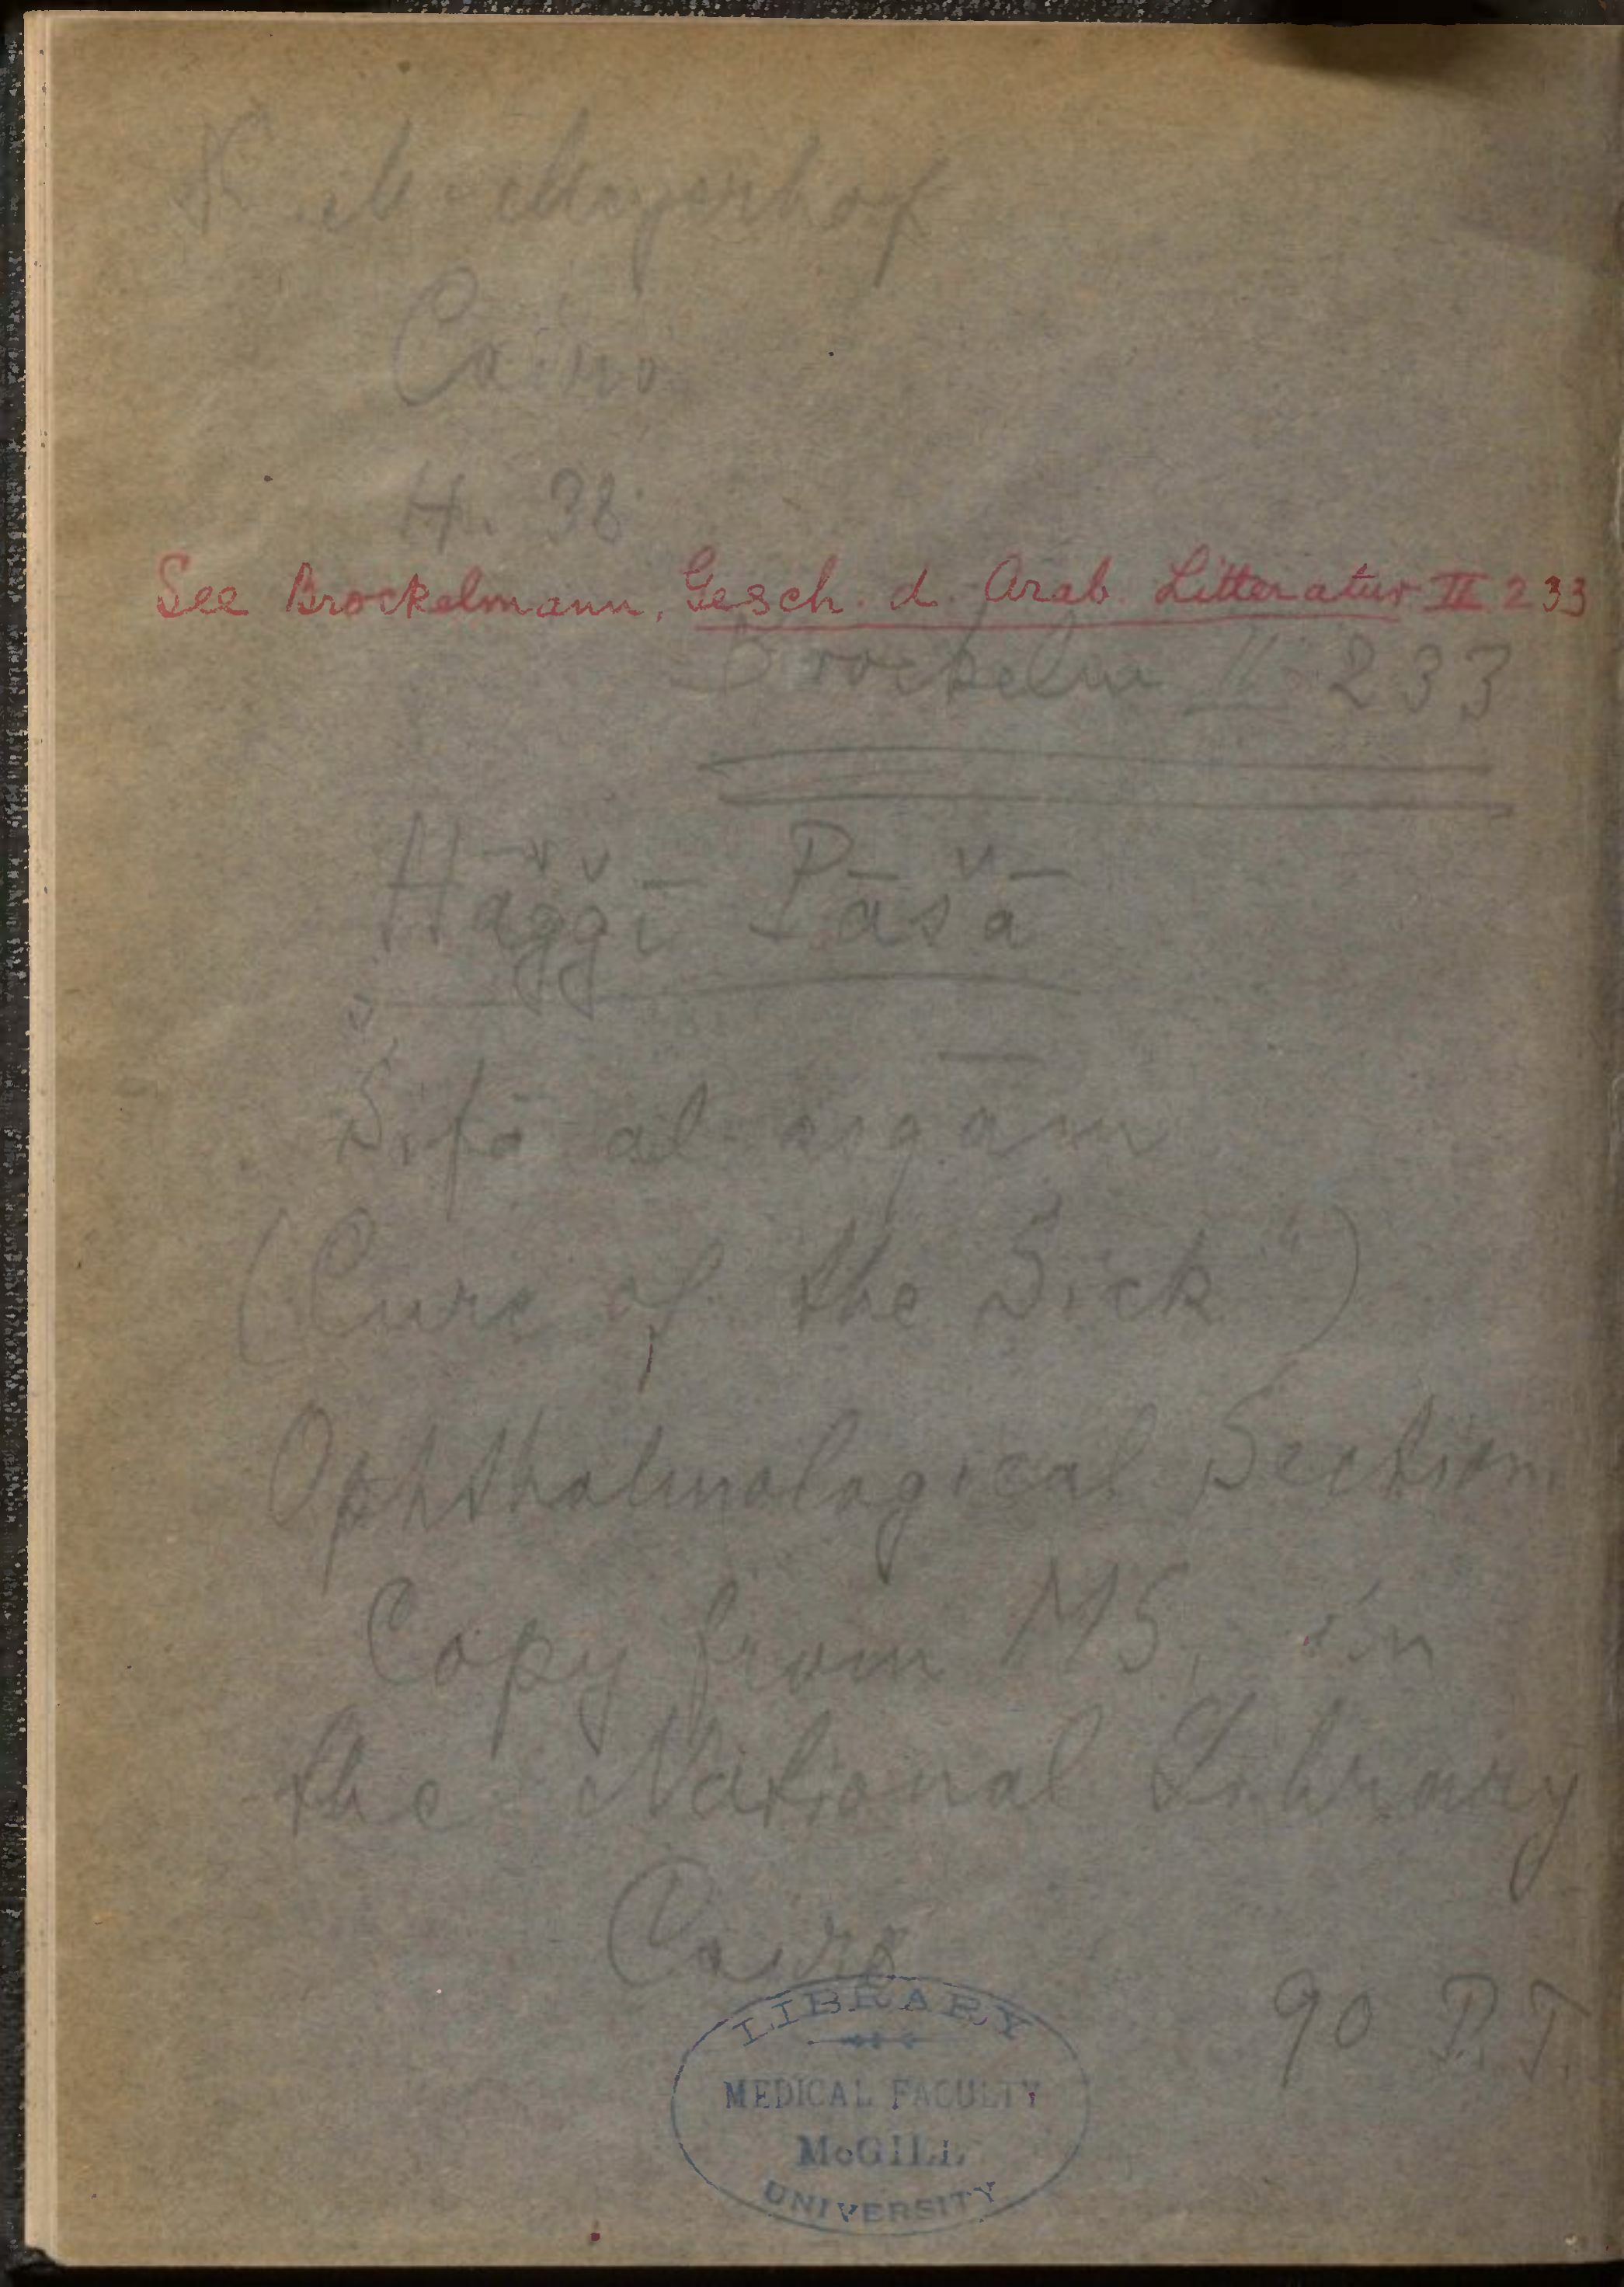 M. Meyerhof
Cairo
H. 38
See Brockelmann, Gesch. d. Arab Litteratur II 233
Brockelm II 233
Ḥāǧǧī Pāšā
Šifā al asqām
(Cure of the Sick")
Ophthalmological Section.
Copy from MS, in
the National Library
Cairo
90 P.T.
LIBRARY
MEDICAL FACULTY
McGILL
UNIVERSITY